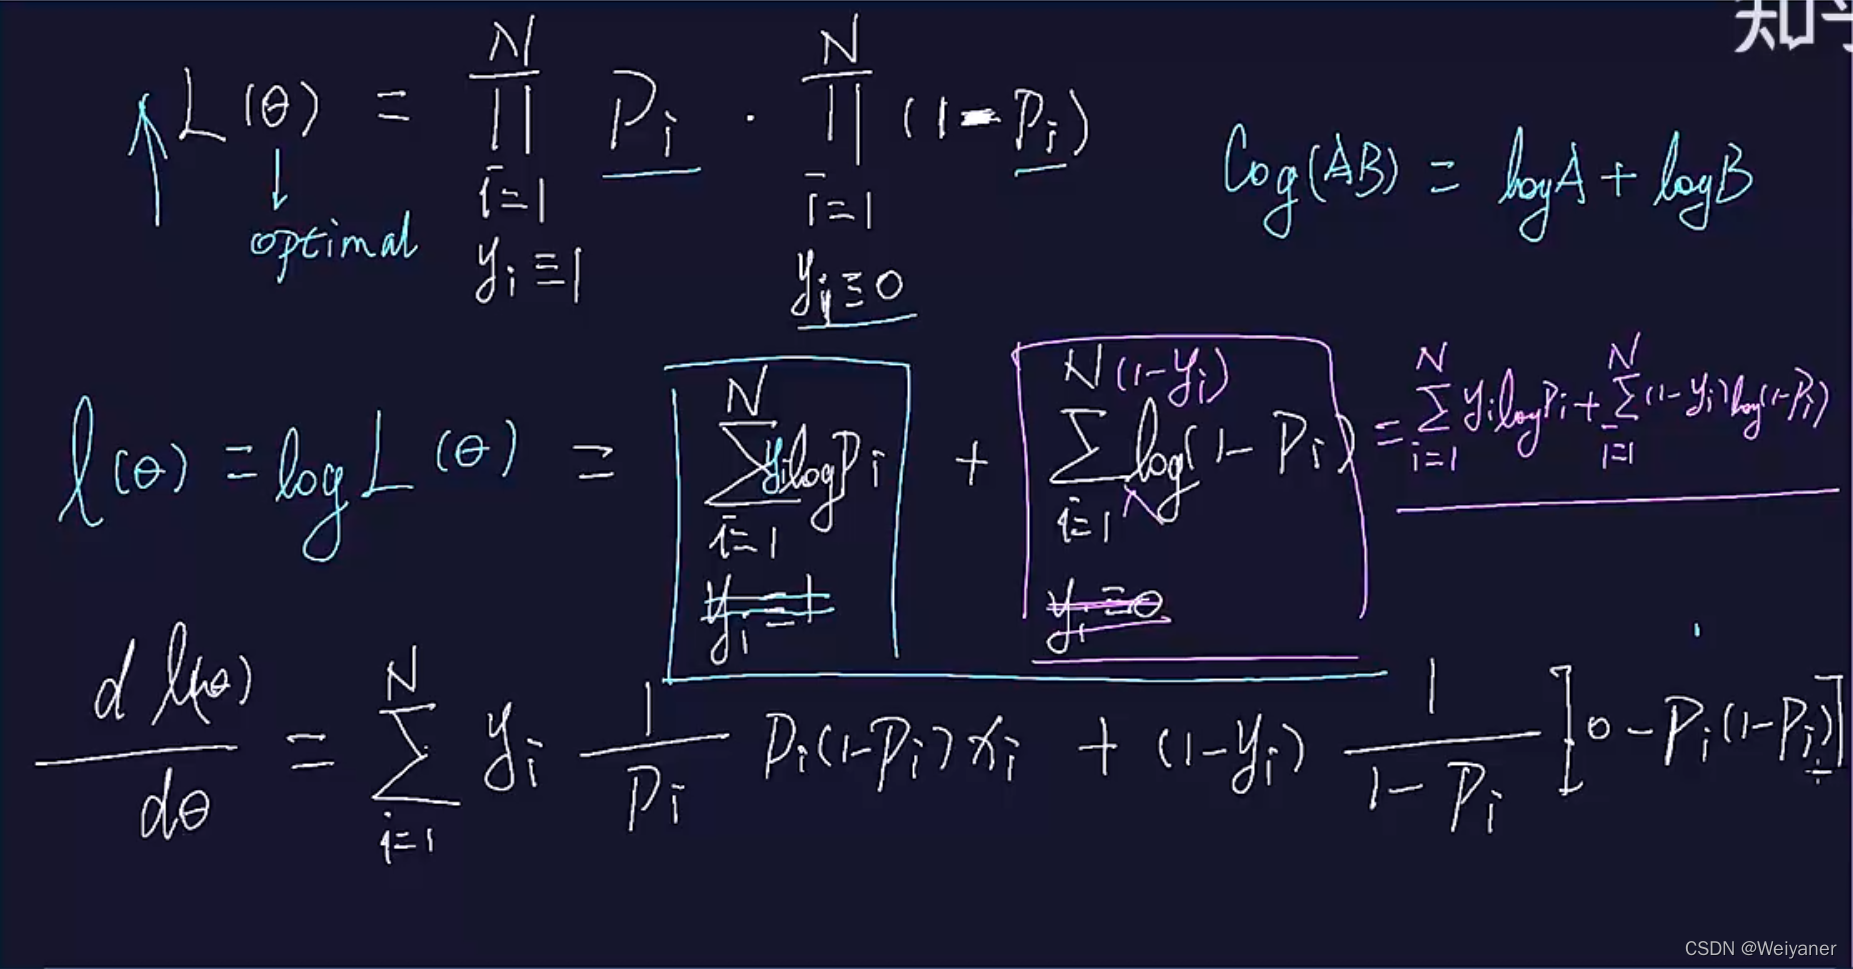 知乎
L(θ) = ∏_{i=1, y_i≡1}^{N} P_i · ∏_{i=1, y_i≡0}^{N} (1-P_i)
optimal
log(AB) = logA + logB
l(θ) = log L(θ) = ∑_{i=1, y_i=1}^{N} y_i log P_i + ∑_{i=1, y_i≡0}^{N} (1-y_i) log(1-P_i) = ∑_{i=1}^{N} y_i log P_i + ∑_{i=1}^{N} (1-y_i) log(1-P_i)
d l(θ) / dθ = ∑_{i=1}^{N} y_i 1/P_i P_i(1-P_i) x_i + (1-y_i) 1/(1-P_i) [0 - P_i(1-P_i)]
CSDN @Weiyaner